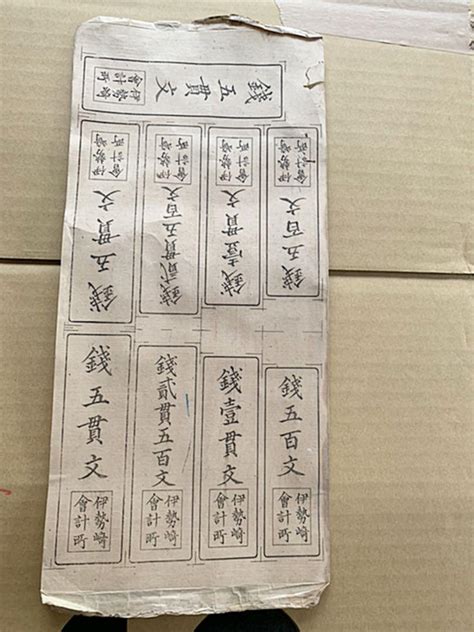 錢五貫文
伊勢崎
會計所
錢五百文
伊勢崎
會計所
錢壹貫文
伊勢崎
會計所
錢貳貫五百文
伊勢崎
會計所
錢五貫文
伊勢崎
會計所
錢五百文
伊勢崎
會計所
錢壹貫文
伊勢崎
會計所
錢貳貫五百文
伊勢崎
會計所
錢五貫文
伊勢崎
會計所